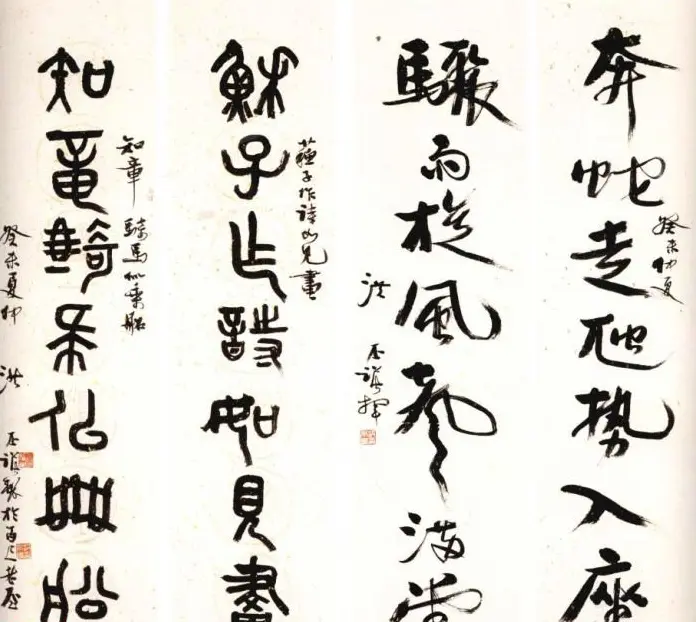 奔蛇走虺势入座
癸未仲夏
驟雨旋風聲滿堂
洪丕謨揮
穌子作詩如見畫
蘇子作詩如見畫
知章騎馬似乘船
知章騎馬似乘船
癸未夏仲洪丕謨製於百尺